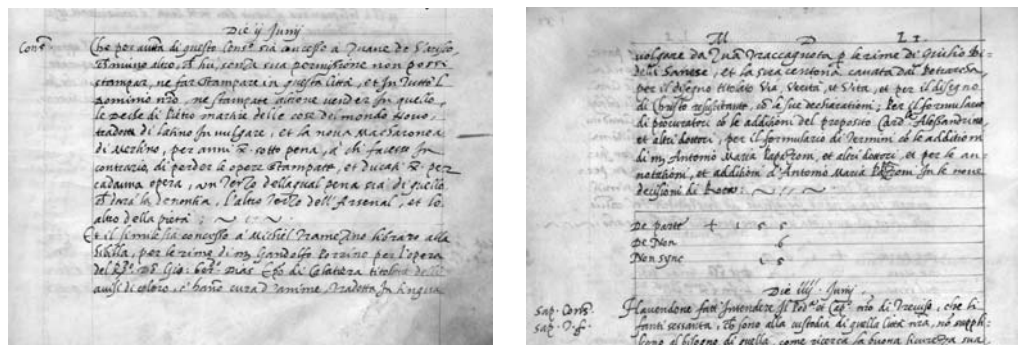 Die ij Junij
Cons.
Che per autà di questo Cons.º sia concesso a Juane de
niuno altro, che lui, senza sua permissione non possi
stampar, ne far stampare in questa città, et In tutto l
Dominio nro, ne stampate altrove vender In quello,
le deche di Pietro martire delle cose del mondo novo,
tradotte di latino In vulgare, et la nova Macharonea
di Merlino, per anni X. sotto pena, a chi facesse In
contrario, di perder le opere stampate, et Ducati X. per
cadauna opera, un terzo della qual pena sia di quello
che farà la denontia, l'altro terzo dell'Arsenal, et lo
altro della pietà :
Et il simile sia concesso a Michiel Tramezino libraro alla
sibilla, per le rime di m. Gandolfo Porrino per l'opera
del Gio: Dias di Calatera titolata delli
avisi di coloro, c'hano cura d'anime, tradotta In lingua
M D L I.
volgare da p le rime di Giulio
Sanese, et la sua centona cavata dal Petrarcha,
per il disegno titolato Via, Verità, et Vita, et per il disegno
di Christo resuscitante, cõ le sue dechiarationi; Per il formulario
di procuratori cõ le additioni del proposito Card. Alessandrino,
et altri dottori, per il formulario di Termini cõ le additioni
di m. Antonio Maria et altri dottori, et per le an-
notationi, et additioni d'Antonio Maria In le nove
decisioni di Rota:
De parte + 1 5 5
De Non 6
Non sync 1 5
Die iiij Junij.
Sap. Cons.
Sap. T. f.
Havendone fatto Intendere Il Pod.tà et Cap.º nro di Treviso, che li
fanti sessanta, che sono alla custodia di quella città nra, nõ suppli-
scono al bisogno di quella, come ricerca la buona sicurezza sua